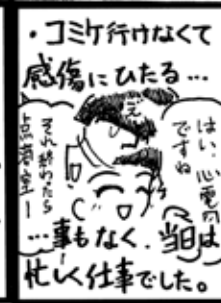 ・コミケ行けなくて
感傷にひたる…
はい、心電図
ですね
それ終わったら
点滴室ー
…事もなく、当日は
忙しく仕事でした。